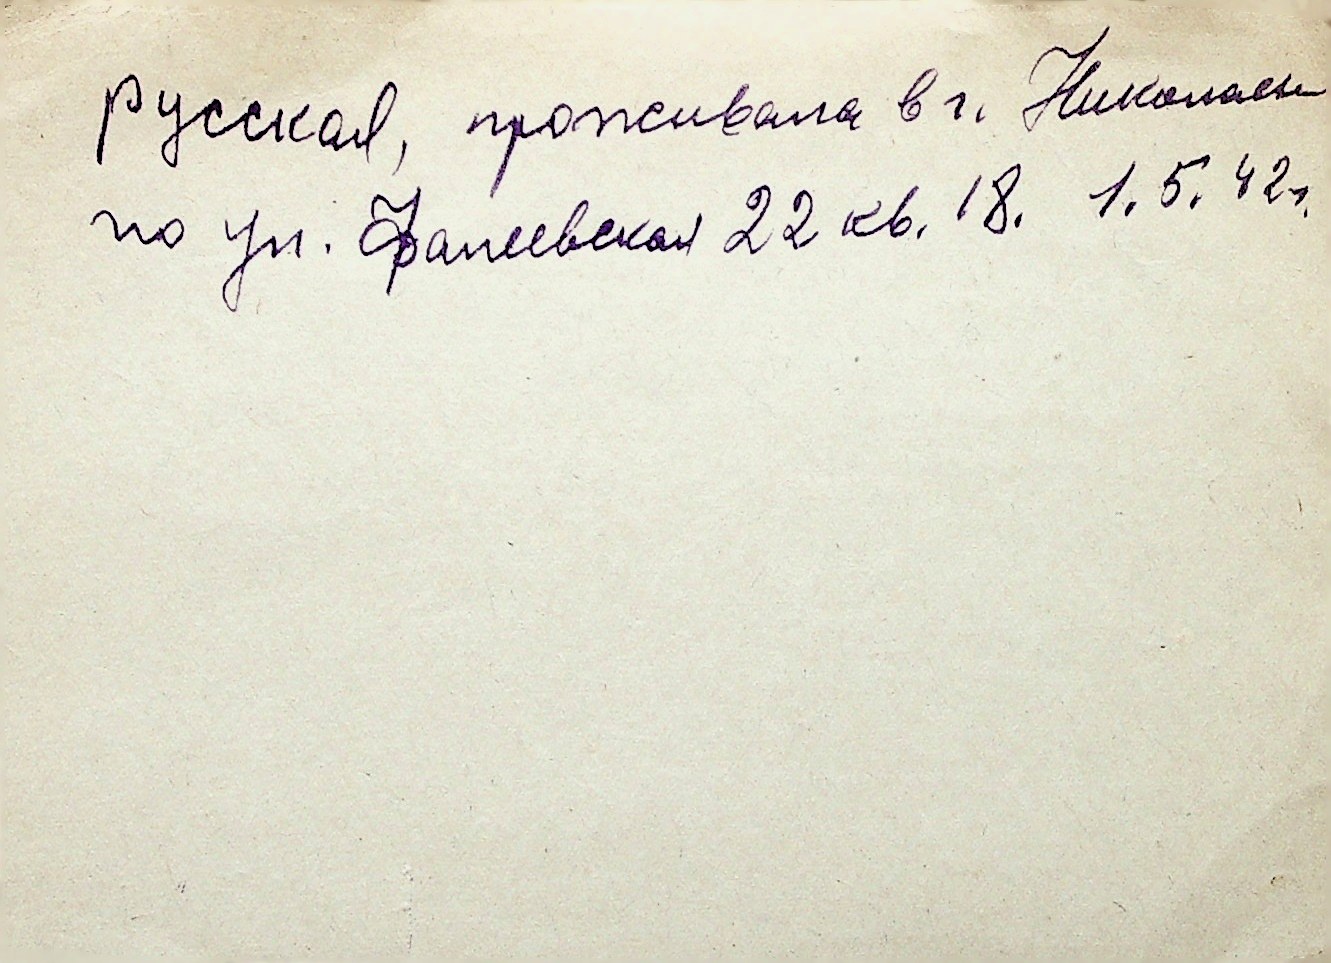 русская, проживала в г. Николаеве
по ул. Фалеевская 22 кв. 18. 1.5.42г.